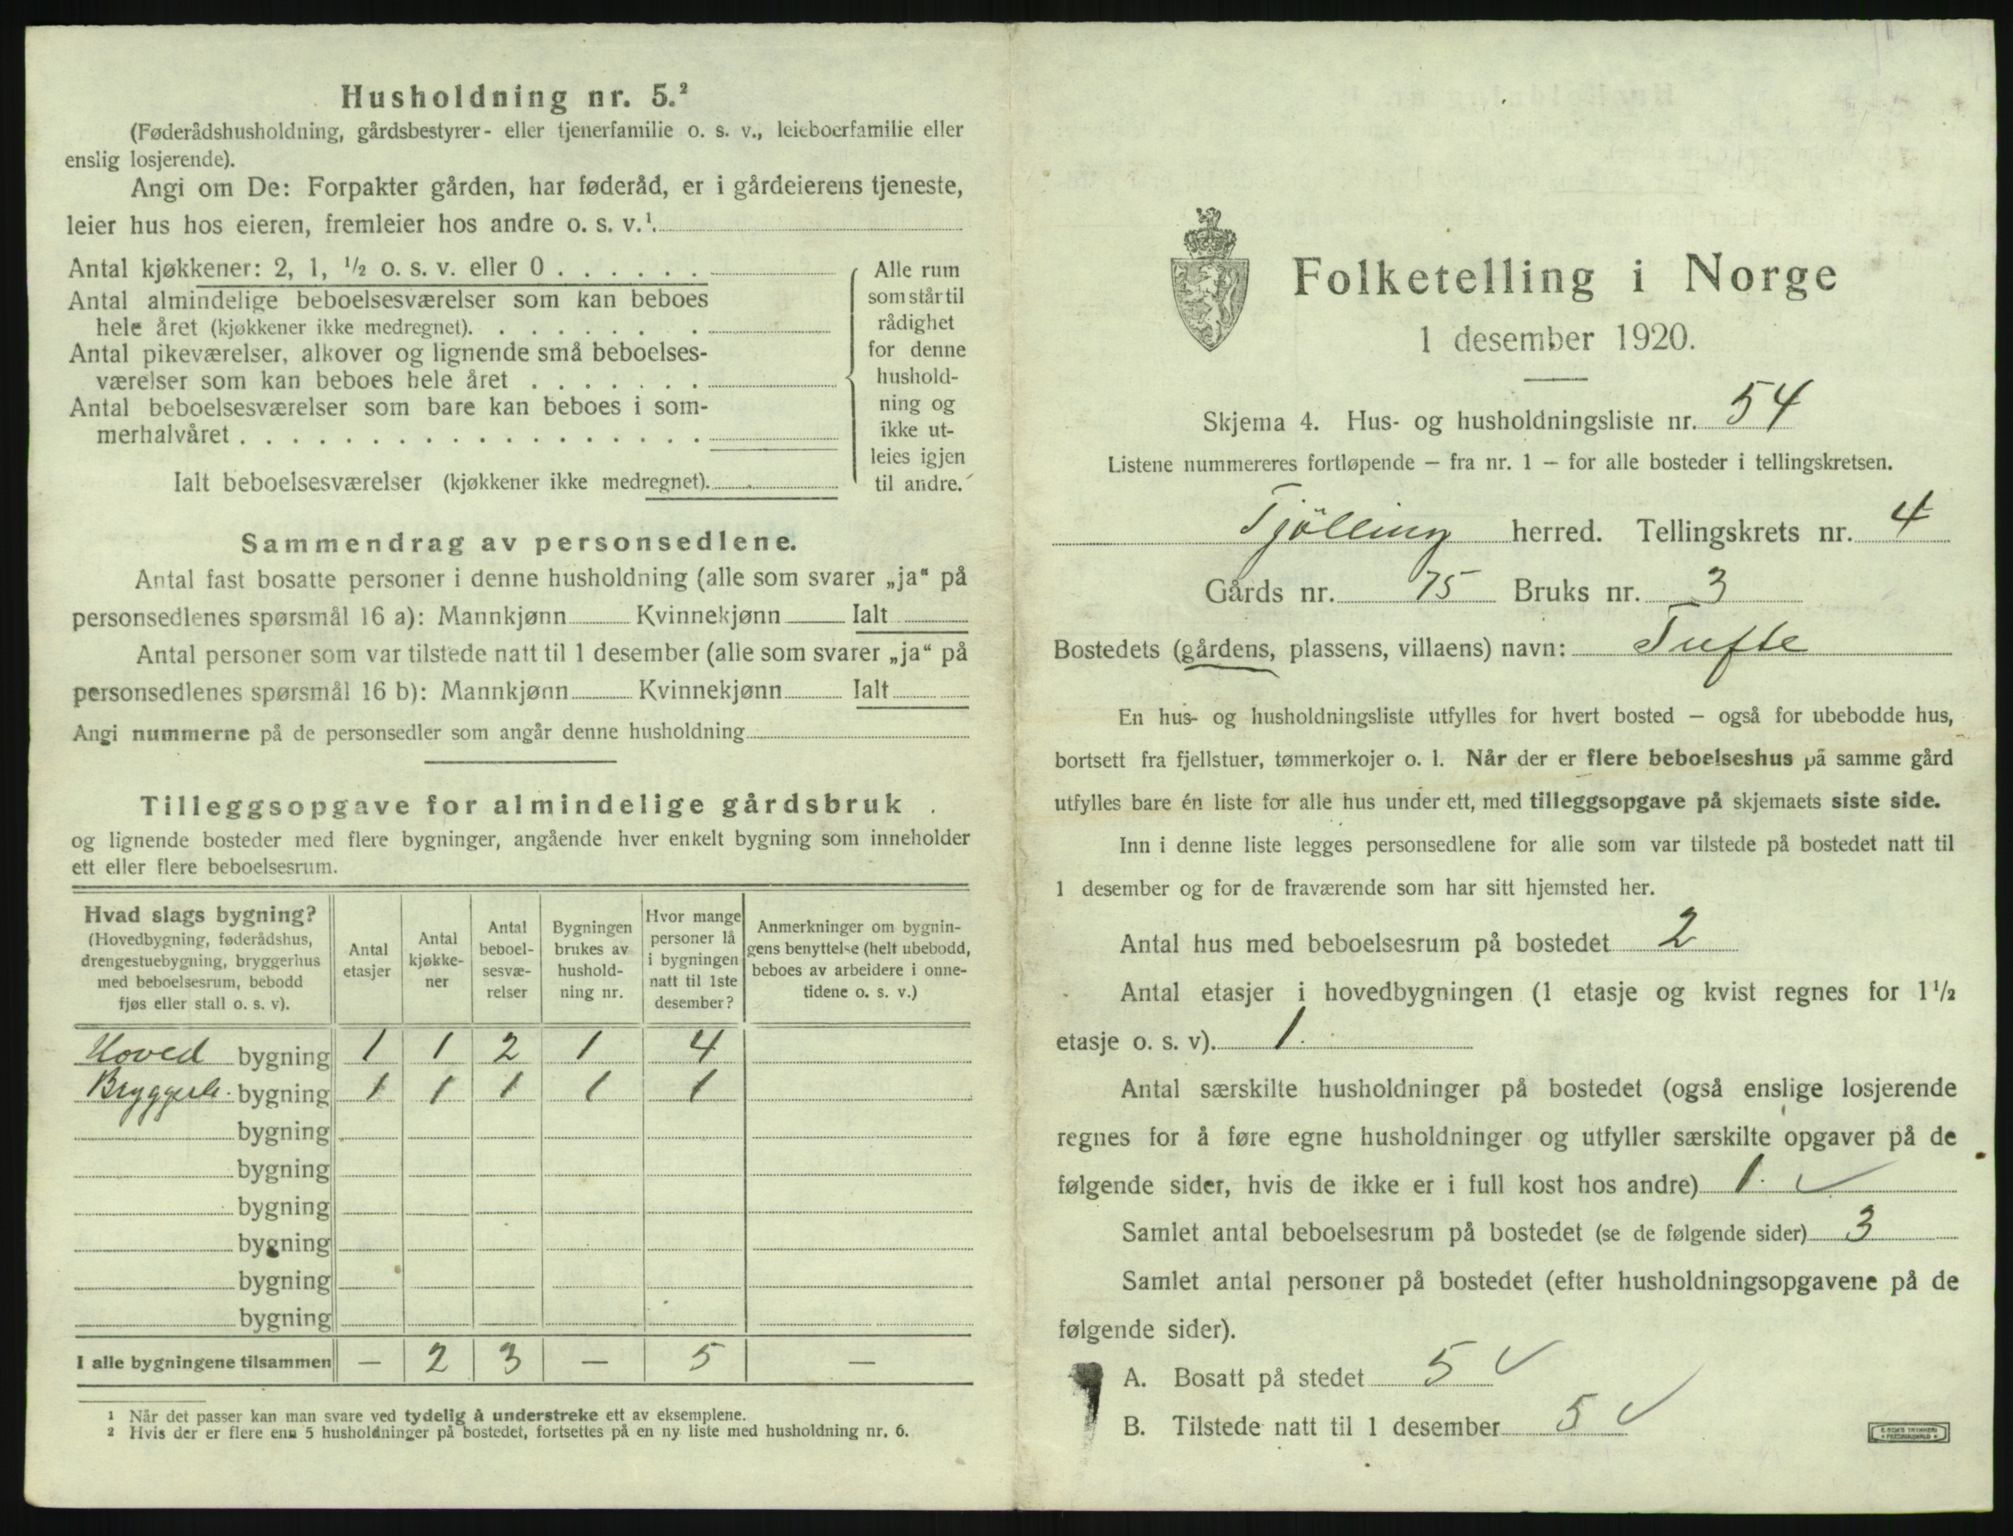 Husholdning nr. 5.²
(Føderådshusholdning, gårdsbestyrer- eller tjenerfamilie o. s. v., leieboerfamilie eller
enslig losjerende).
Angi om De: Forpakter gården, har føderåd, er i gårdeierens tjeneste,
leier hus hos eieren, fremleier hos andre o. s. v.¹.
Antal kjøkkener: 2, 1, ½ o. s. v. eller 0 . . . . . .
Antal almindelige beboelsesværelser som kan beboes
hele året (kjøkkener ikke medregnet). . . . . . . .
Antal pikeværelser, alkover og lignende små beboelses-
værelser som kan beboes hele året . . . . . . .
Antal beboelsesværelser som bare kan beboes i som-
merhalvåret . . . . . . . . . . . . . . . . . .
Ialt beboelsesværelser (kjøkkener ikke medregnet).
Alle rum
som står til
rådighet
for denne
hushold-
ning og
ikke ut-
leies igjen
til andre.
Sammendrag av personsedlene.
Antal fast bosatte personer i denne husholdning (alle som svarer „ja“ på
personsedlenes spørsmål 16 a): Mannkjønn Kvinnekjønn Ialt
Antal personer som var tilstede natt til 1 desember (alle som svarer „ja“ på
personsedlenes spørsmål 16 b): Mannkjønn Kvinnekjønn Ialt
Angi nummerne på de personsedler som angår denne husholdning
Tilleggsopgave for almindelige gårdsbruk
og lignende bosteder med flere bygninger, angående hver enkelt bygning som inneholder
ett eller flere beboelsesrum.
Hvad slags bygning?
(Hovedbygning, føderådshus,
drengestuebygning, bryggerhus
med beboelsesrum, bebodd
fjøs eller stall o. s. v).
Antal
etasjer
Antal
kjøkke-
ner
Antal
beboel-
sesvæ-
relser
Bygningen
brukes av
hushold-
ning nr.
Hvor mange
personer lå
i bygningen
natt til 1ste
desember?
Anmerkninger om bygnin-
gens benyttelse (helt ubebodd,
beboes av arbeidere i onne-
tidene o. s. v.)
Hoved bygning 1 1 2 1 4
Bryggerh. bygning 1 1 1 1 1
bygning
bygning
bygning
bygning
bygning
bygning
I alle bygningene tilsammen — 2 3 — 5 —
1 Når det passer kan man svare ved tydelig å understreke ett av eksemplene.
2 Hvis der er flere enn 5 husholdninger på bostedet, fortsettes på en ny liste med husholdning nr. 6.
Folketelling i Norge
1 desember 1920.
Skjema 4. Hus- og husholdningsliste nr. 54
Listene nummereres fortløpende — fra nr. 1 — for alle bosteder i tellingskretsen.
Tjölling herred. Tellingskrets nr. 4
Gårds nr. 75 Bruks nr. 3
Bostedets (gårdens, plassens, villaens) navn: Tufte
En hus- og husholdningsliste utfylles for hvert bosted — også for ubebodde hus,
bortsett fra fjellstuer, tømmerkojer o. l. Når der er flere beboelseshus på samme gård
utfylles bare én liste for alle hus under ett, med tilleggsopgave på skjemaets siste side.
Inn i denne liste legges personsedlene for alle som var tilstede på bostedet natt til
1 desember og for de fraværende som har sitt hjemsted her.
Antal hus med beboelsesrum på bostedet 2
Antal etasjer i hovedbygningen (1 etasje og kvist regnes for 1½
etasje o. s. v). 1.
Antal særskilte husholdninger på bostedet (også enslige losjerende
regnes for å føre egne husholdninger og utfyller særskilte opgaver på de
følgende sider, hvis de ikke er i full kost hos andre) 1. ✓
Samlet antal beboelsesrum på bostedet (se de følgende sider) 3
Samlet antal personer på bostedet (efter husholdningsopgavene på de
følgende sider).
A. Bosatt på stedet 5 ✓
B. Tilstede natt til 1 desember 5 ✓